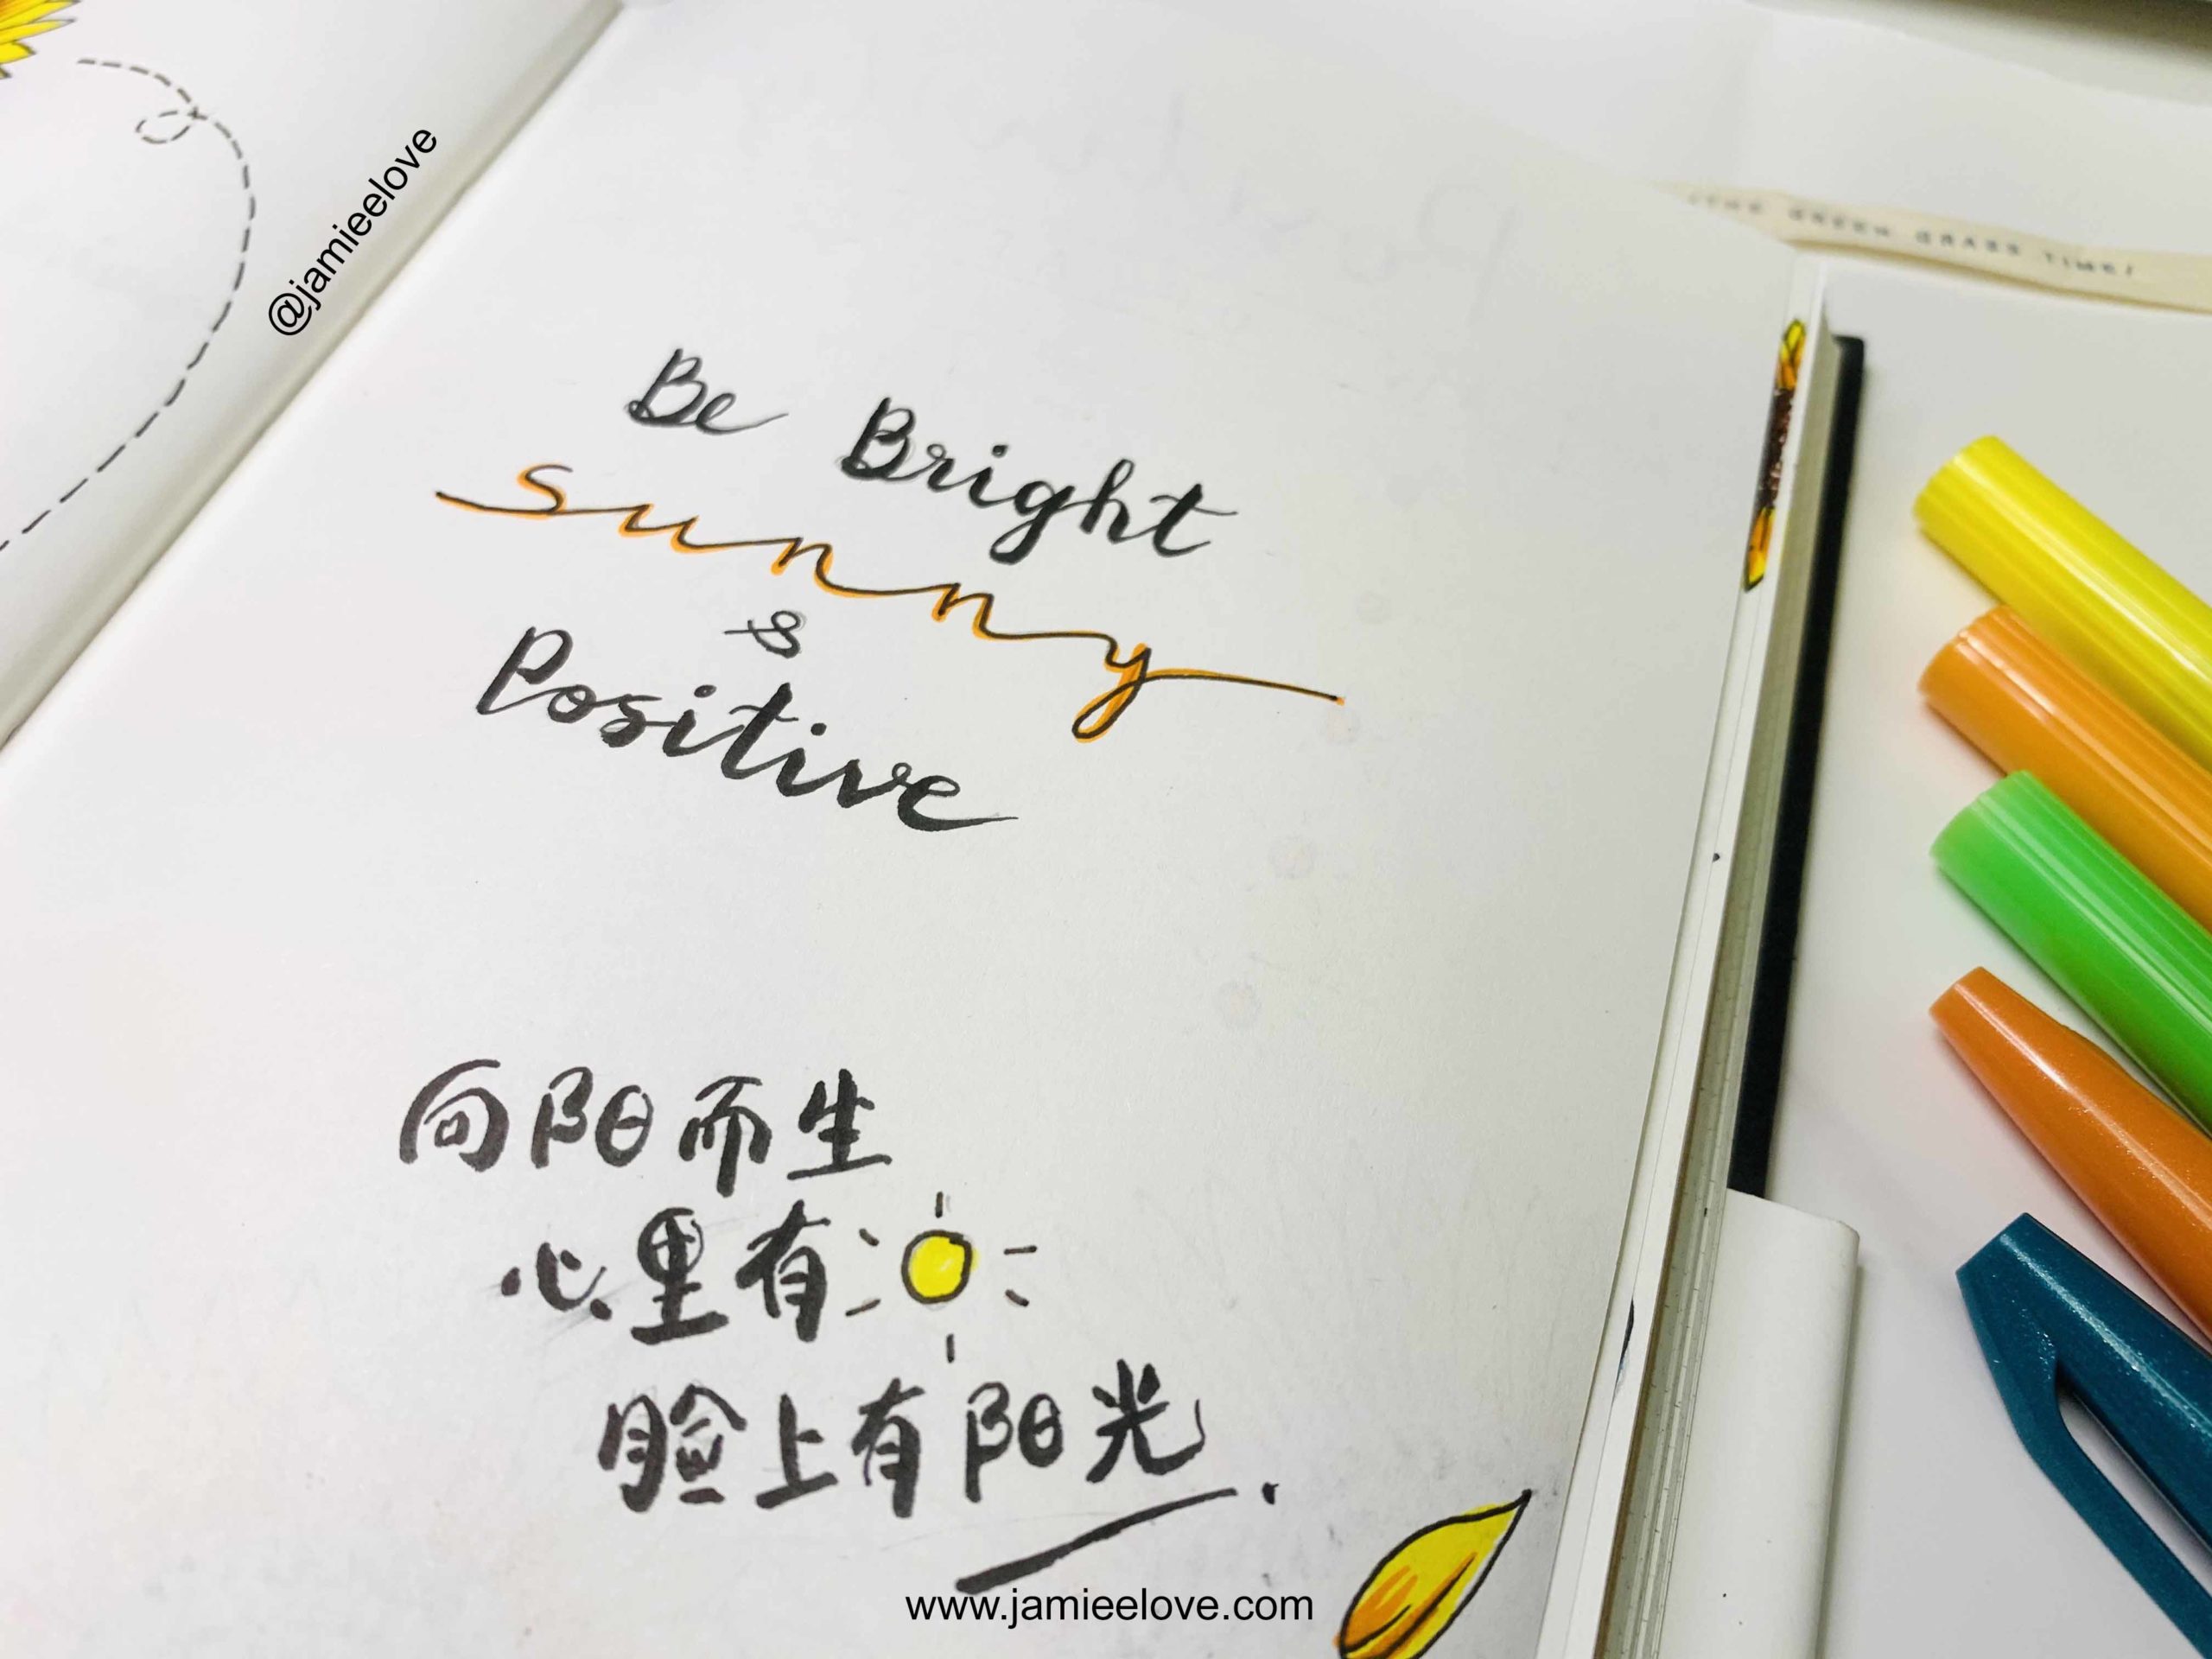 @jamieelove
Be Bright
sunny
&
Positive
向阳而生
心里有
脸上有阳光.
www.jamieelove.com